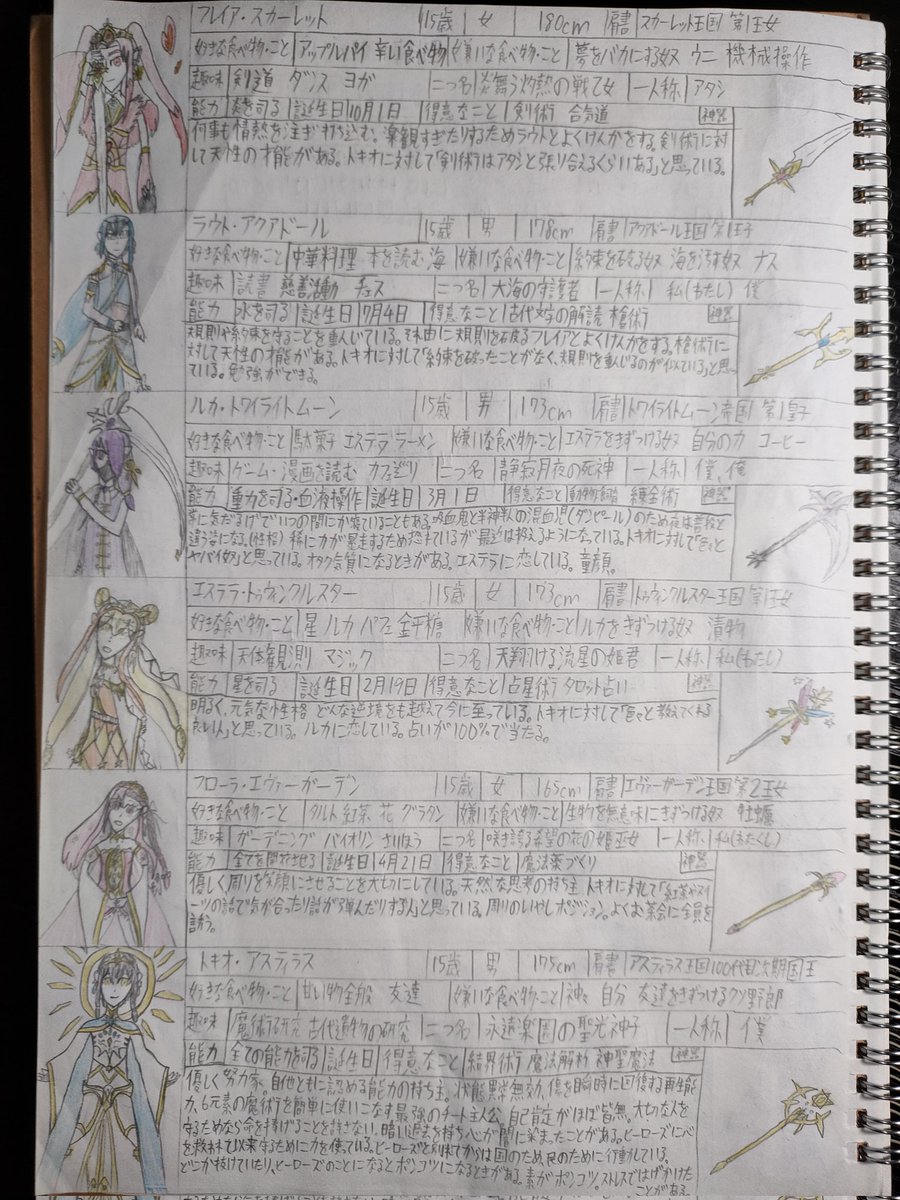 フレイア・スカーレット 15歳 女 180cm 肩書 スカーレット王国 第1王女
好きな食べ物・こと アップルパイ 辛い食べ物 嫌いな食べ物・こと 夢をバカにする奴 ウニ 機械操作
趣味 剣道 ダンス ヨガ 二つ名 炎舞う灼熱の戦乙女 一人称 アタシ
能力 炎を司る 誕生日 10月1日 得意なこと 剣術 合気道 神器
何事も情熱を注ぎ打ち込む。楽観すぎたりするためラウトとよくけんかをする。剣術に対
して天性の才能がある。トキオに対して「剣術はアタシと張り合えるくらいある」と思っている。
ラウト・アクアドール 15歳 男 178cm 肩書 アクアドール王国 第1王子
好きな食べ物・こと 中華料理 本を読む 海 嫌いな食べ物・こと 約束を破る奴 海を汚す奴 ナス
趣味 読書 慈善活動 チェス 二つ名 大海の守護者 一人称 私(わたし) 僕
能力 水を司る 誕生日 7月4日 得意なこと 古代文字の解読 槍術 神器
規則や約束を守ることを重んじている。それ由に規則を破るフレイアとよくけんかをする。槍術に
対して天性の才能がある。トキオに対して「約束を破ったことがなく、規則を重んじるのが似ている」と思っ
ている。勉強ができる。
ルカ・トワイライトムーン 15歳 男 173cm 肩書 トワイライトムーン帝国 第1皇子
好きな食べ物・こと 駄菓子 エステラ ラーメン 嫌いな食べ物・こと エステラをきずつける奴 自分の力 コーヒー
趣味 ゲーム・漫画を読む カフェ巡り 二つ名 静寂月夜の死神 一人称 僕、俺
能力 重力を司る・血液操作 誕生日 3月1日 得意なこと 錬金術 神器
常に気だるげでいつの間にか寝ていることもある。吸血鬼と半神半人の混血児(ダンピール)のため夜は普段と
違う姿になる。(性格) 稀に力が暴走するため恐れているが最近は抑えるようになっている。トキオに対して「色々と
ヤバイ奴」と思っている。オタク気質になるときがある。エステラに恋している。童顔。
エステラ・トゥインクルスター 15歳 女 173cm 肩書 トゥインクルスター王国 第1王女
好きな食べ物・こと 星 ルカ パフェ 金平糖 嫌いな食べ物・こと ルカをきずつける奴 漬物
趣味 天体観測 マジック 二つ名 天翔ける流星の姫君 一人称 私(わたし)
能力 星を司る 誕生日 2月19日 得意なこと 占星術 タロット占い 神器
明るく、元気な性格 どんな逆境をも越えて今に至っている。トキオに対して「色々と教えてくれる
良い人」と思っている。ルカに恋している。占いが100%で当たる。
フローラ・エヴァーガーデン 15歳 女 165cm 肩書 エヴァーガーデン王国 第2王女
好きな食べ物・こと タルト 紅茶 花 グラタン 嫌いな食べ物・こと 生物を無意味にきずつける奴 牡蠣
趣味 ガーデニング バイオリン さいほう 二つ名 咲き誇る希望の花の姫巫女 一人称 私(わたくし)
能力 全てを開花させる 誕生日 4月21日 得意なこと 魔法薬づくり 神器
優しく周りを笑顔にさせることを大切にしている。天然な思考の持ち主 トキオに対して「紅茶やスイ
ーツの話で気が合ったり話が弾んだりする人」と思っている。周りのいやしポジション。よくお茶会に全員を
誘う。
トキオ・アスティラス 15歳 男 175cm 肩書 アスティラス王国100代目次期国王
好きな食べ物・こと 甘い物全般 友達 嫌いな食べ物・こと 神々 自分 友達をきずつけるクソ野郎
趣味 魔術研究 古代遺物の研究 二つ名 永遠楽園の聖光神子 一人称 僕
能力 全ての能力を司る 誕生日 得意なこと 結界術 魔法解析 神聖魔法 神器
優しく努力家、自他ともに認める能力の持ち主。状態異常無効、傷を瞬時に回復する再生能
力、6元素の魔術を簡単に使いこなす最強のチート主人公。自己肯定がほぼ皆無。大切な人を
守るためなら命を捧げることを許さない。暗い過去を持ち心が闇に染まったことがある。ヒーローズに心
を救われて以来守るために力を使っている。ヒーローズと別れてからは国のため、民のために行動している。
どこか抜けていたり、ヒーローズのことになるとポンコツになるときがある。素がポンコツ。ストレスではげかけた
ことがある。